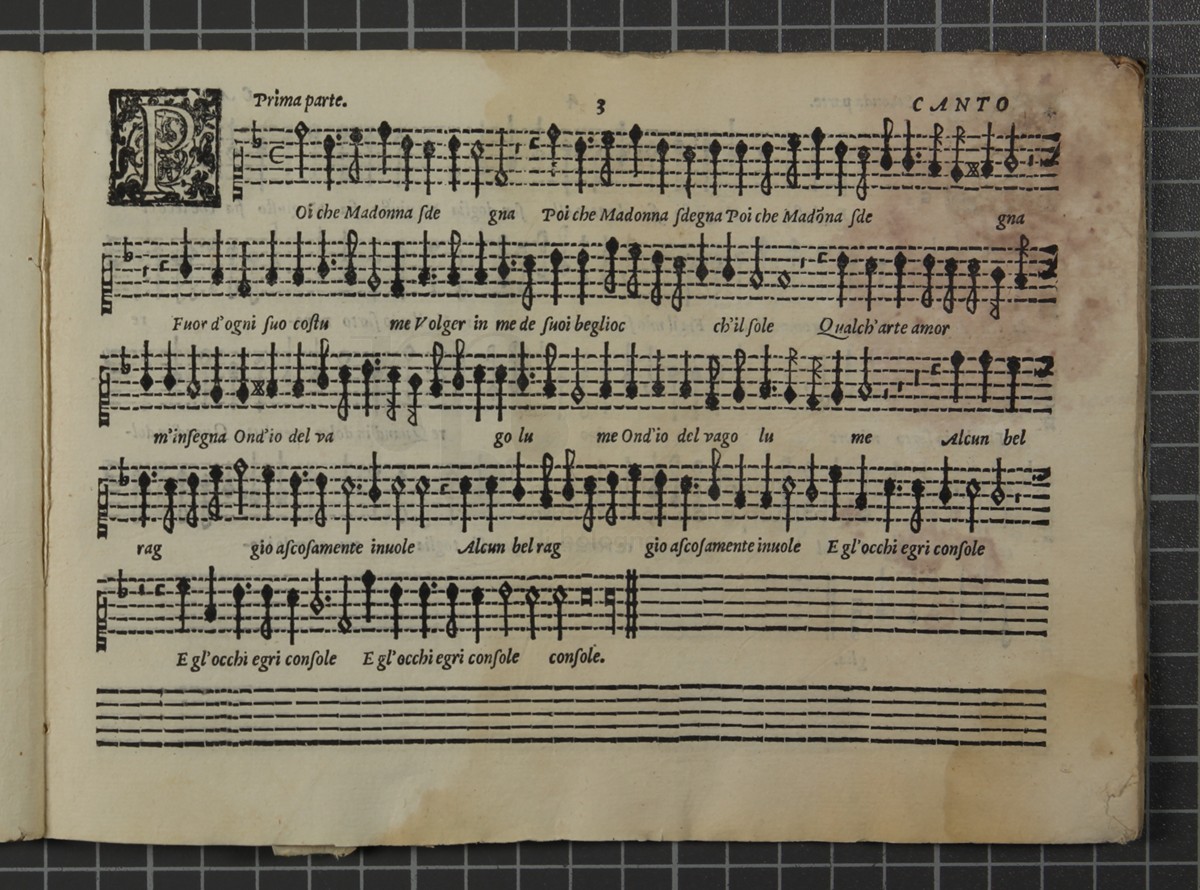 Prima parte. 3 CANTO
POi che Madonna ſde gna Poi che Madonna ſdegna Poi che Madõna ſde gna
Fuor d'ogni ſuo coſtu me Volger in me de ſuoi beglioc ch'il ſole Qualch'arte amor
m'inſegna Ond'io del va go lu me Ond'io del vago lu me Alcun bel
rag gio aſcoſamente inuole Alcun bel rag gio aſcoſamente inuole E gl'occhi egri conſole
E gl'occhi egri conſole E gl'occhi egri conſole conſole.